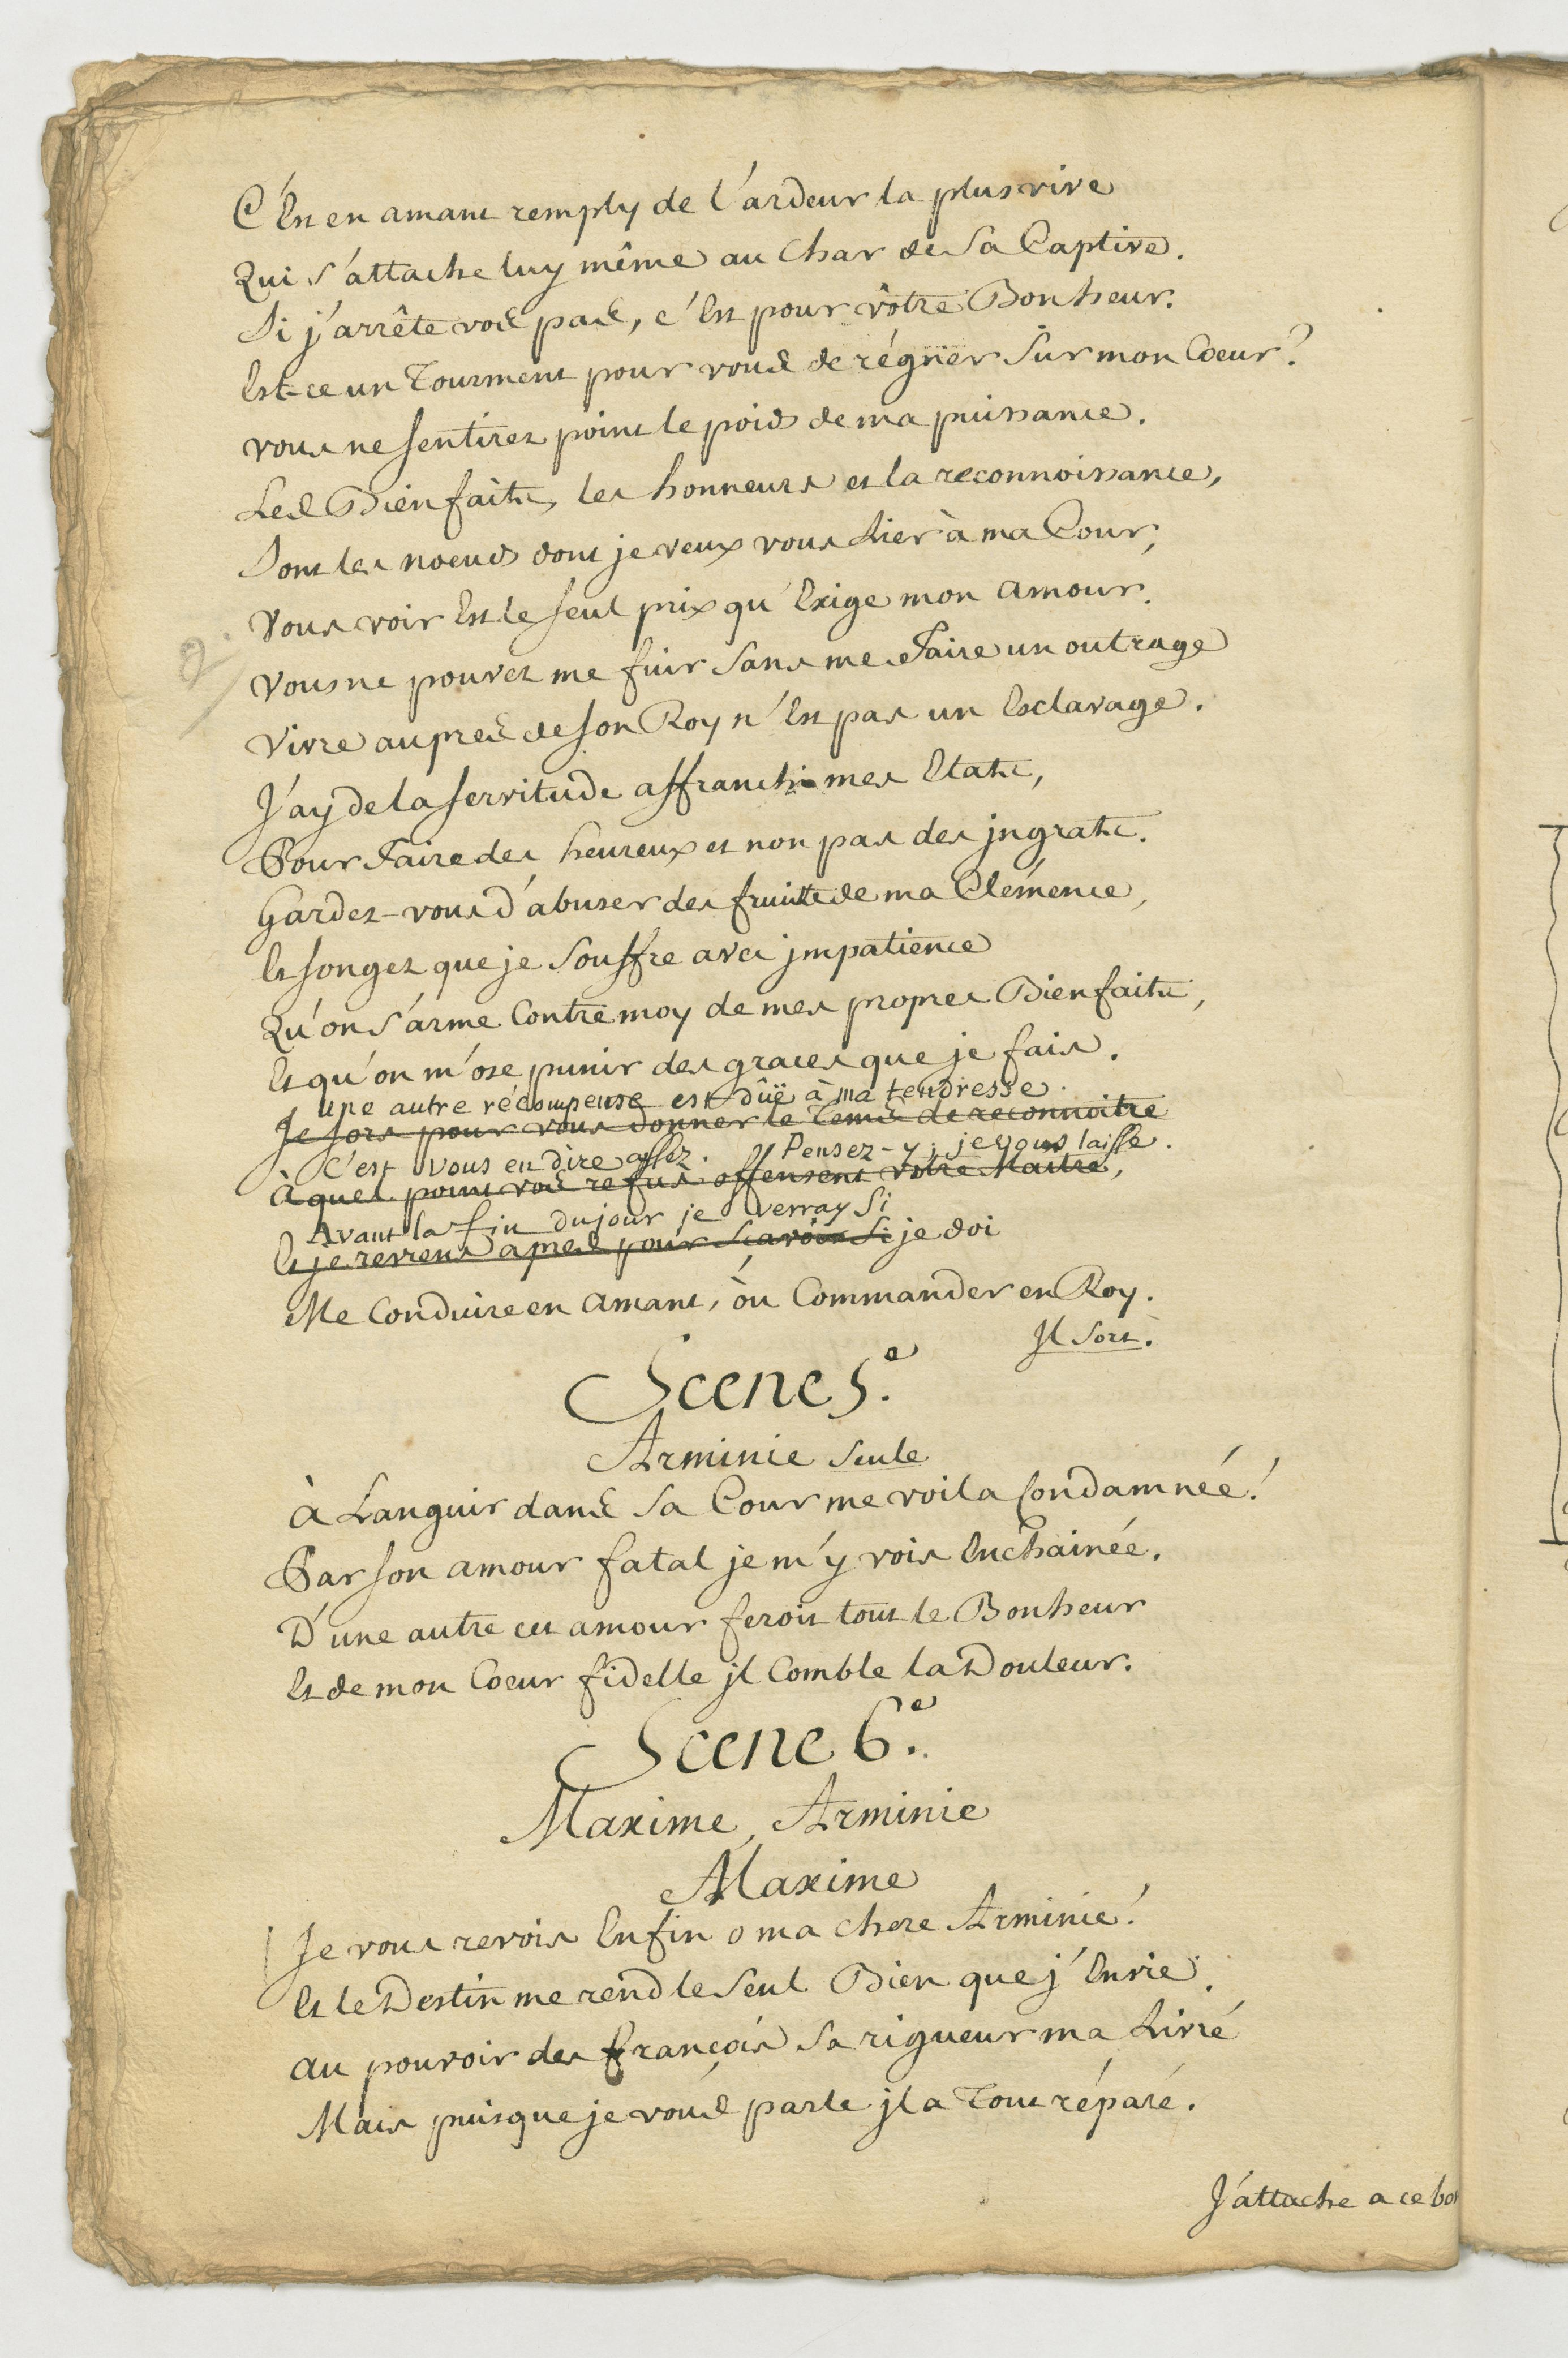 C'Est en amant remply de l'ardeur la plus vive
Qui s'attache luy même au Char de Sa Captive.
Si j'arrête vos pas, c'Est pour vôtre Bonheur.
Est-ce un Tourment pour vous de régner Sur mon Coeur?
vous ne sentirez point le poids de ma puissance.
Les Bienfaits, les honneurs et la reconnoissance,
Sont les noeuds dont je veux vous Lier à ma Cour,
Vous voir Est le seul prix qu'Exige mon amour.
Vous ne pouvez me fuir Sans me Faire un outrage
Vivre aupres de son Roy n'Est pas un Esclavage.
J'ay de la servitude affranchi mes Etats,
Pour Faire des heureux et non pas des jngrats.
Gardez-vous d'abuser des fruits de ma Clémence,
Et songez que je Souffre avec jmpatience
Qu'on s'arme Contre moy de mes propres Bienfaits,
Et qu'on m'ose punir des graces que je fais.
Une autre récompense est dûë à ma tendresse.
Je sors pour vous donner le Tems de reconnoitre
C'est vous en dire assez. Pensez-y; je vous laisse.
À quel point vos refus offensent votre Maitre,
Avant la fin du jour je verray Si
Et je reviens apres pour Sçavoir Si je doi
Me Conduire en amant, où Commander en Roy.
Jl Sort.
Scene 5.e
Arminie Seule
à Languir dans Sa Cour me voila Condamnéé!
Par son amour fatal je m'y vois Enchainée.
D'une autre cet amour feroit tout le Bonheur
Et de mon Coeur fidelle jl Comble la Douleur.
Scene 6.e
Maxime, Arminie
Maxime
Je vous revois Enfin o ma chere Arminie!
Et le Destin me rend le Seul Bien que j'Envie.
au pouvoir des françois Sa rigueur ma Livré
Mais puisque je vous parle jl a Tout réparé.
J'attache a ce bo